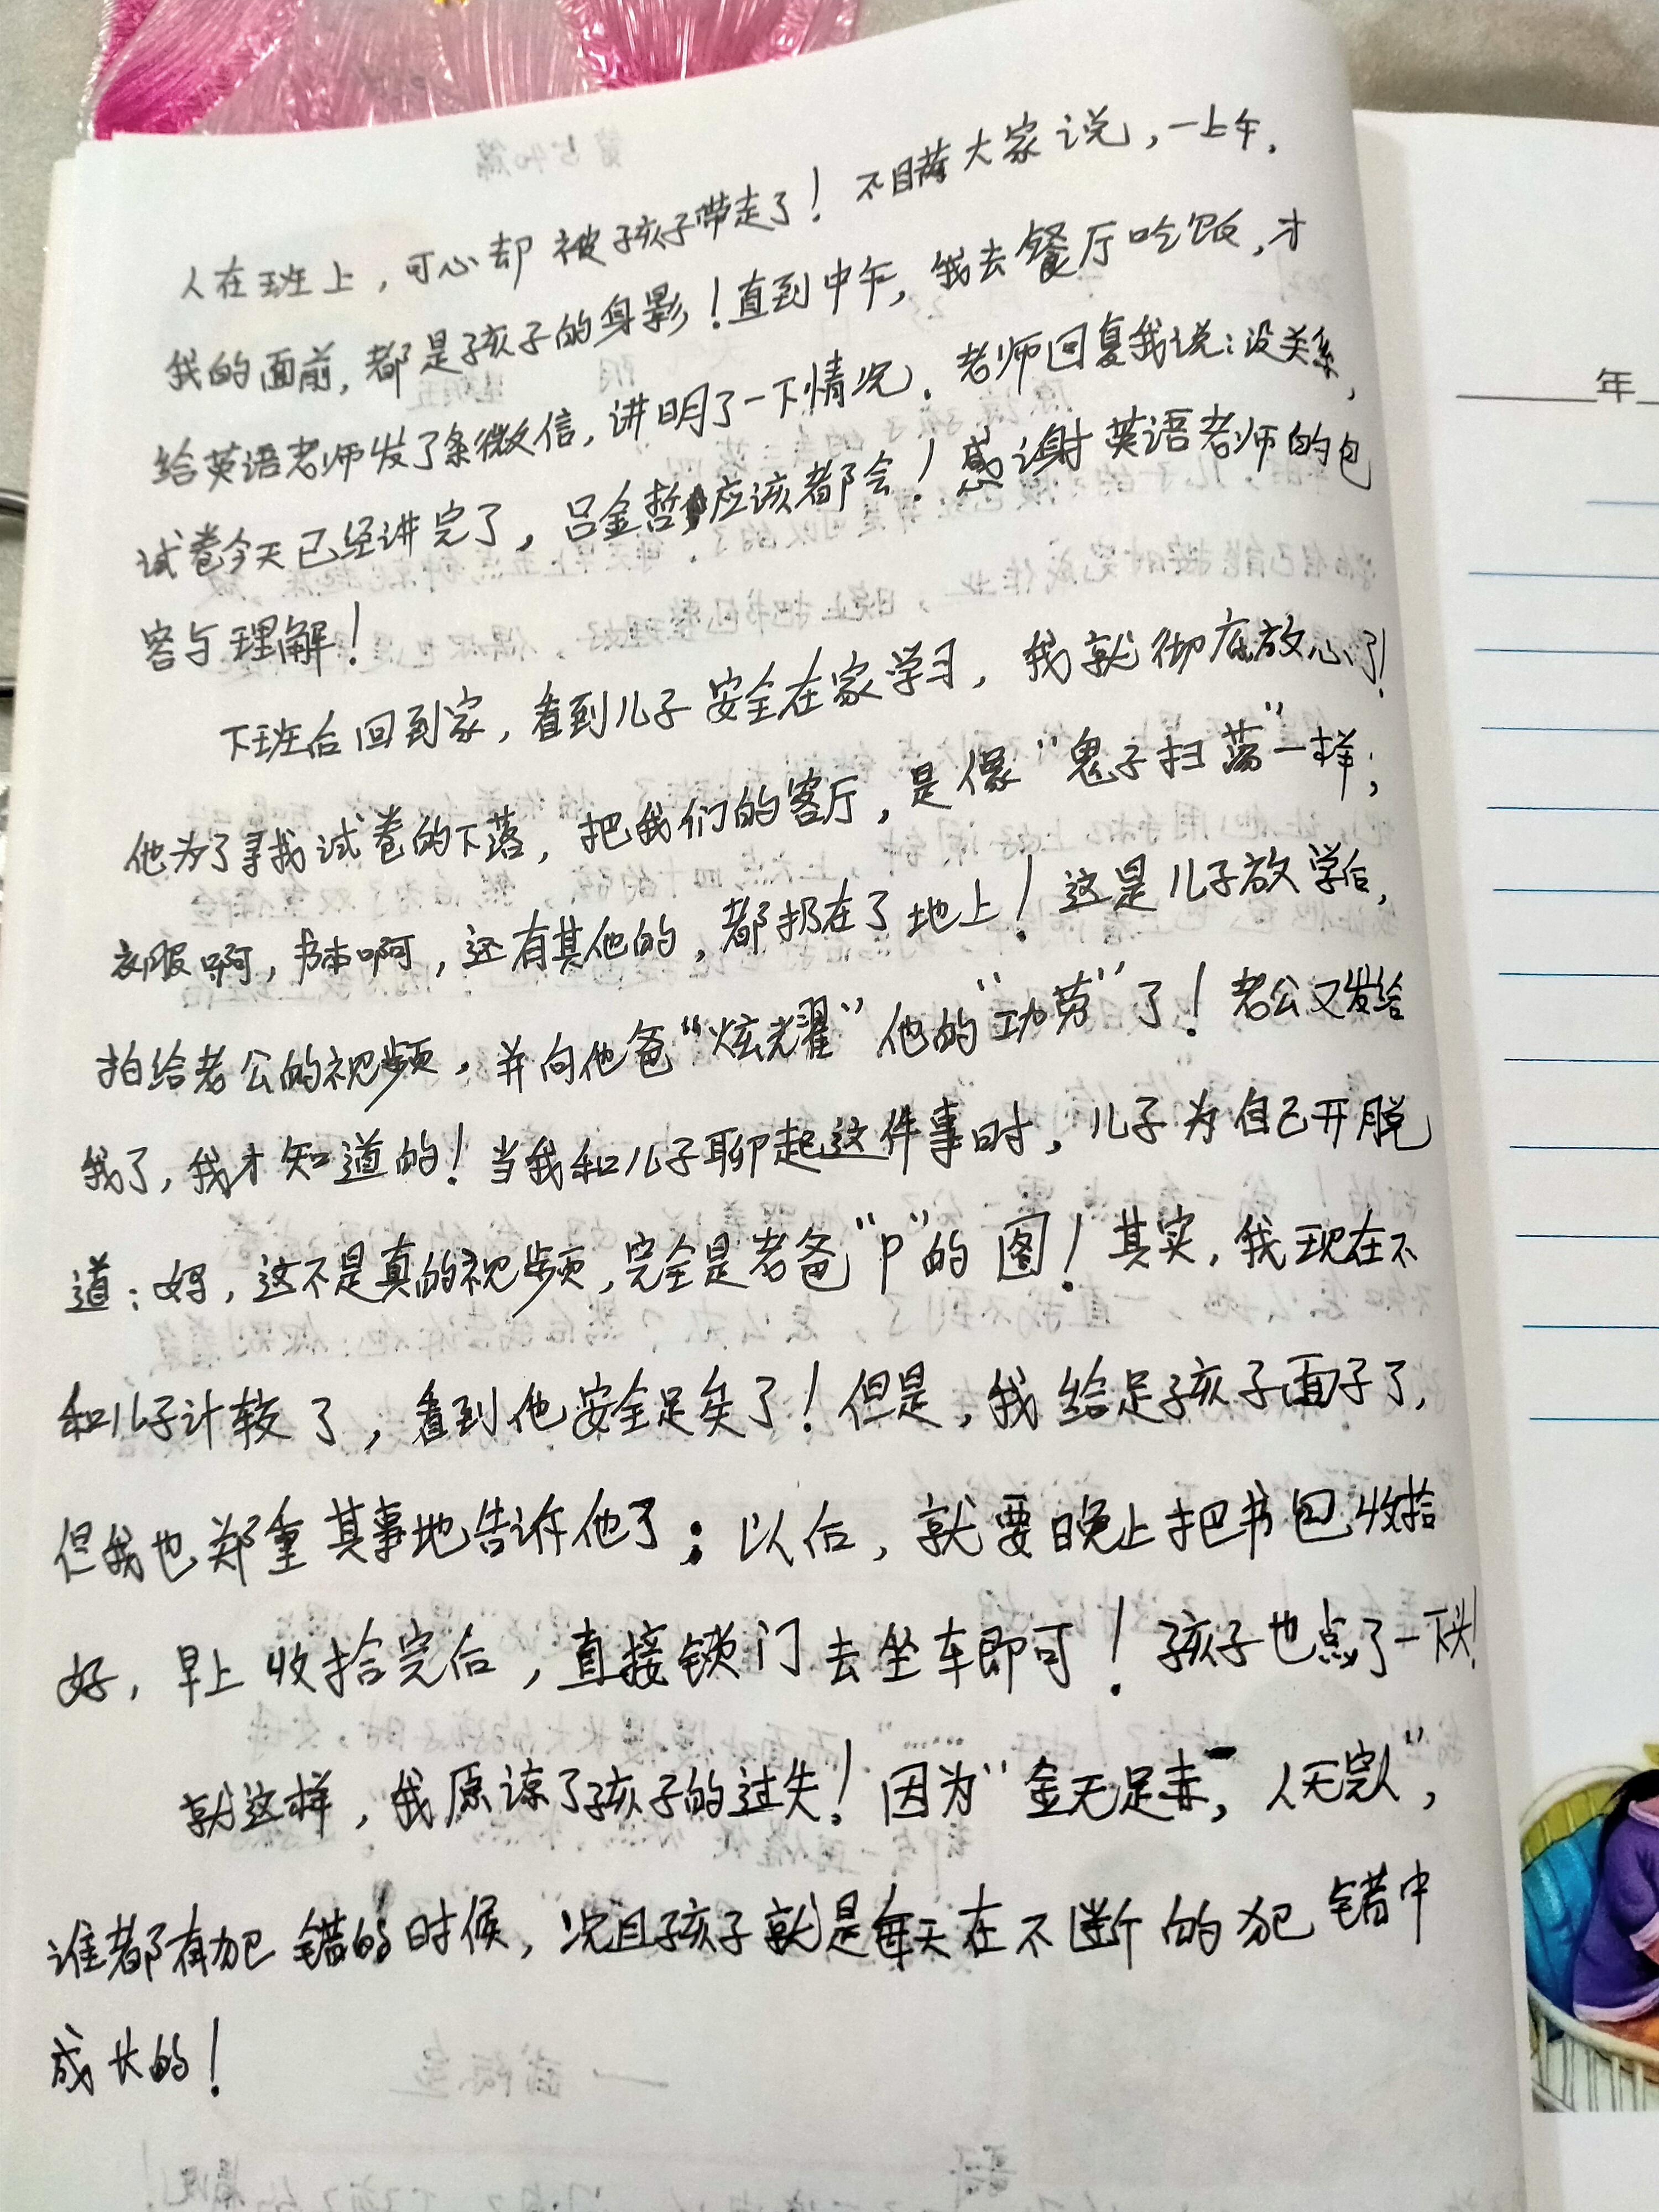 人在班上，可心却被孩子带走了！不瞒大家说，一上午，
我的面前，都是孩子的身影！直到中午，我去餐厅吃饭，才
给英语老师发了条微信，讲明了一下情况。老师回复我说：没关系，
试卷今天已经讲完了，吕金哲应该都会！感谢英语老师的包
容与理解！
下班后回到家，看到儿子安全在家学习，我就彻底放心了！
他为了寻找试卷的下落，把我们的客厅，是像“鬼子扫荡”一样；
衣服啊，书本啊，还有其他的，都扔在了地上！这是儿子放学后，
拍给老公的视频，并向他爸“炫耀”他的“功劳”了！老公又发给
我了，我才知道的！当我和儿子聊起这件事时，儿子为自己开脱
道：妈，这不是真的视频，完全是老爸“P”的图！其实，我现在不
和儿子计较了，看到他安全足矣了！但是，我给足孩子面子了，
但我也郑重其事地告诉他了；以后，就要晚上把书包收拾
好，早上收拾完后，直接锁门去坐车即可！孩子也点了一下头！
就这样，我原谅了孩子的过失！因为“金无足赤，人无完人”，
谁都有犯错的时候，况且孩子就是每天在不断的犯错中
成长的！
年